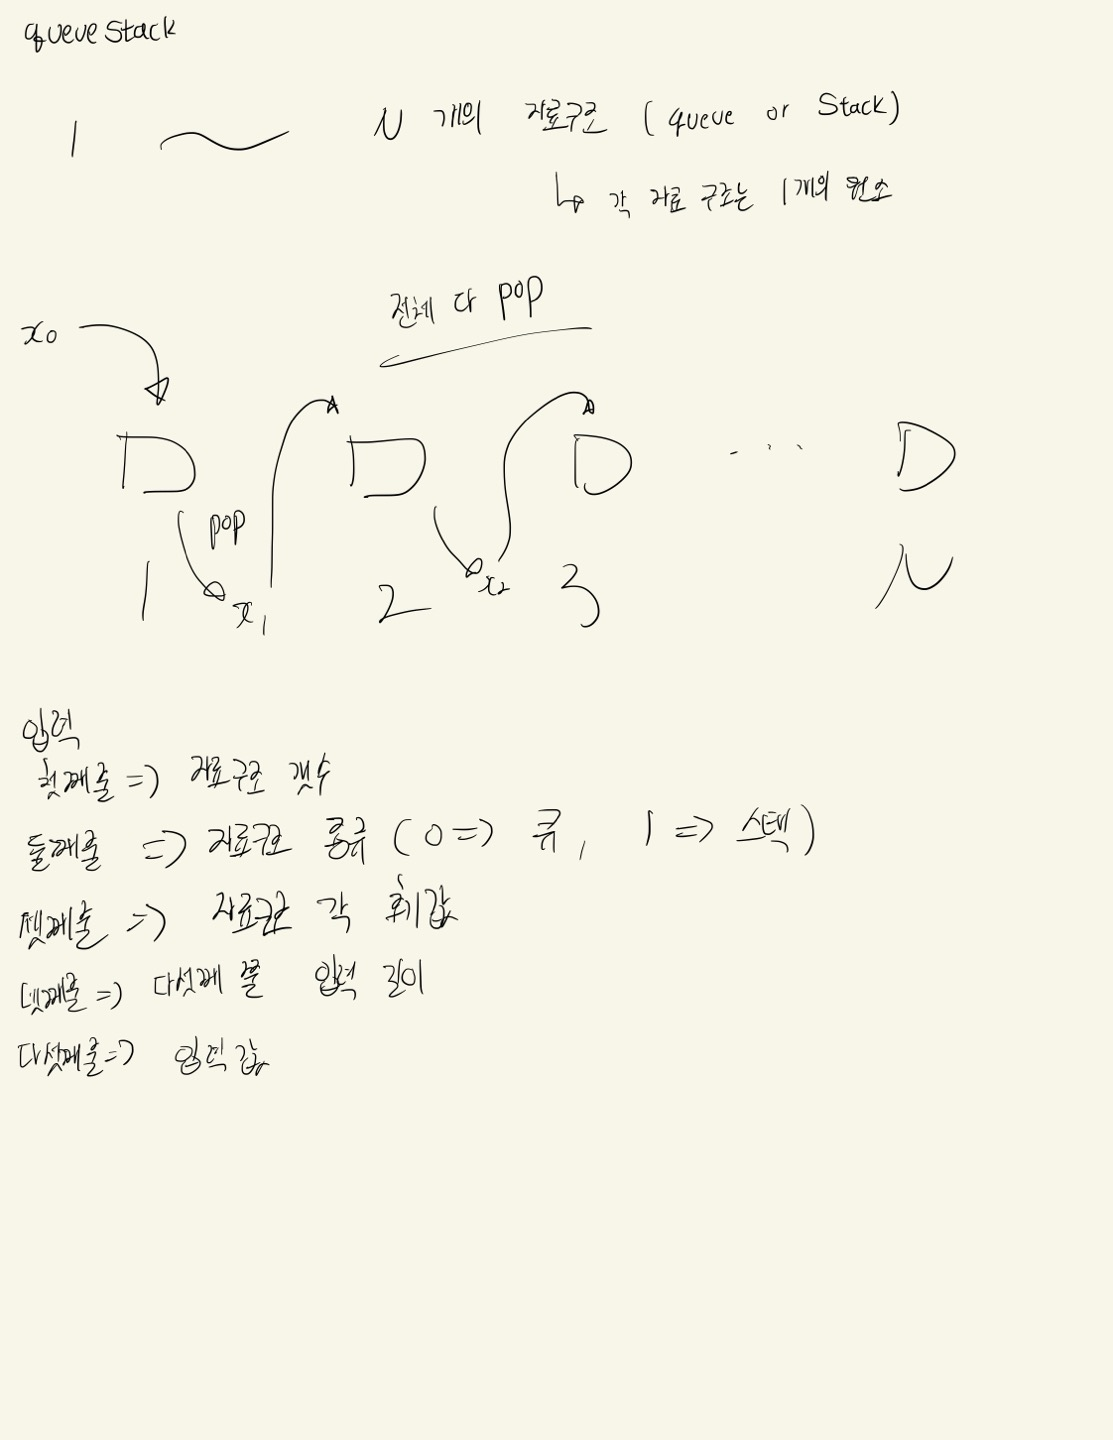 queue Stack
1 ~ N 개의 자료구조 (queue or Stack)
↳ 각 자료 구조는 1개의 원소
전체 다 pop
x₀
D D D ... D
pop
x₁ x₂
1 2 3 N
입력
첫째줄 => 자료구조 갯수
둘째줄 => 자료구조 종류 (0 => 큐, 1 => 스택)
셋째줄 => 자료구조 각 초기값
넷째줄 => 다섯째 줄 입력 길이
다섯째줄 => 입력값